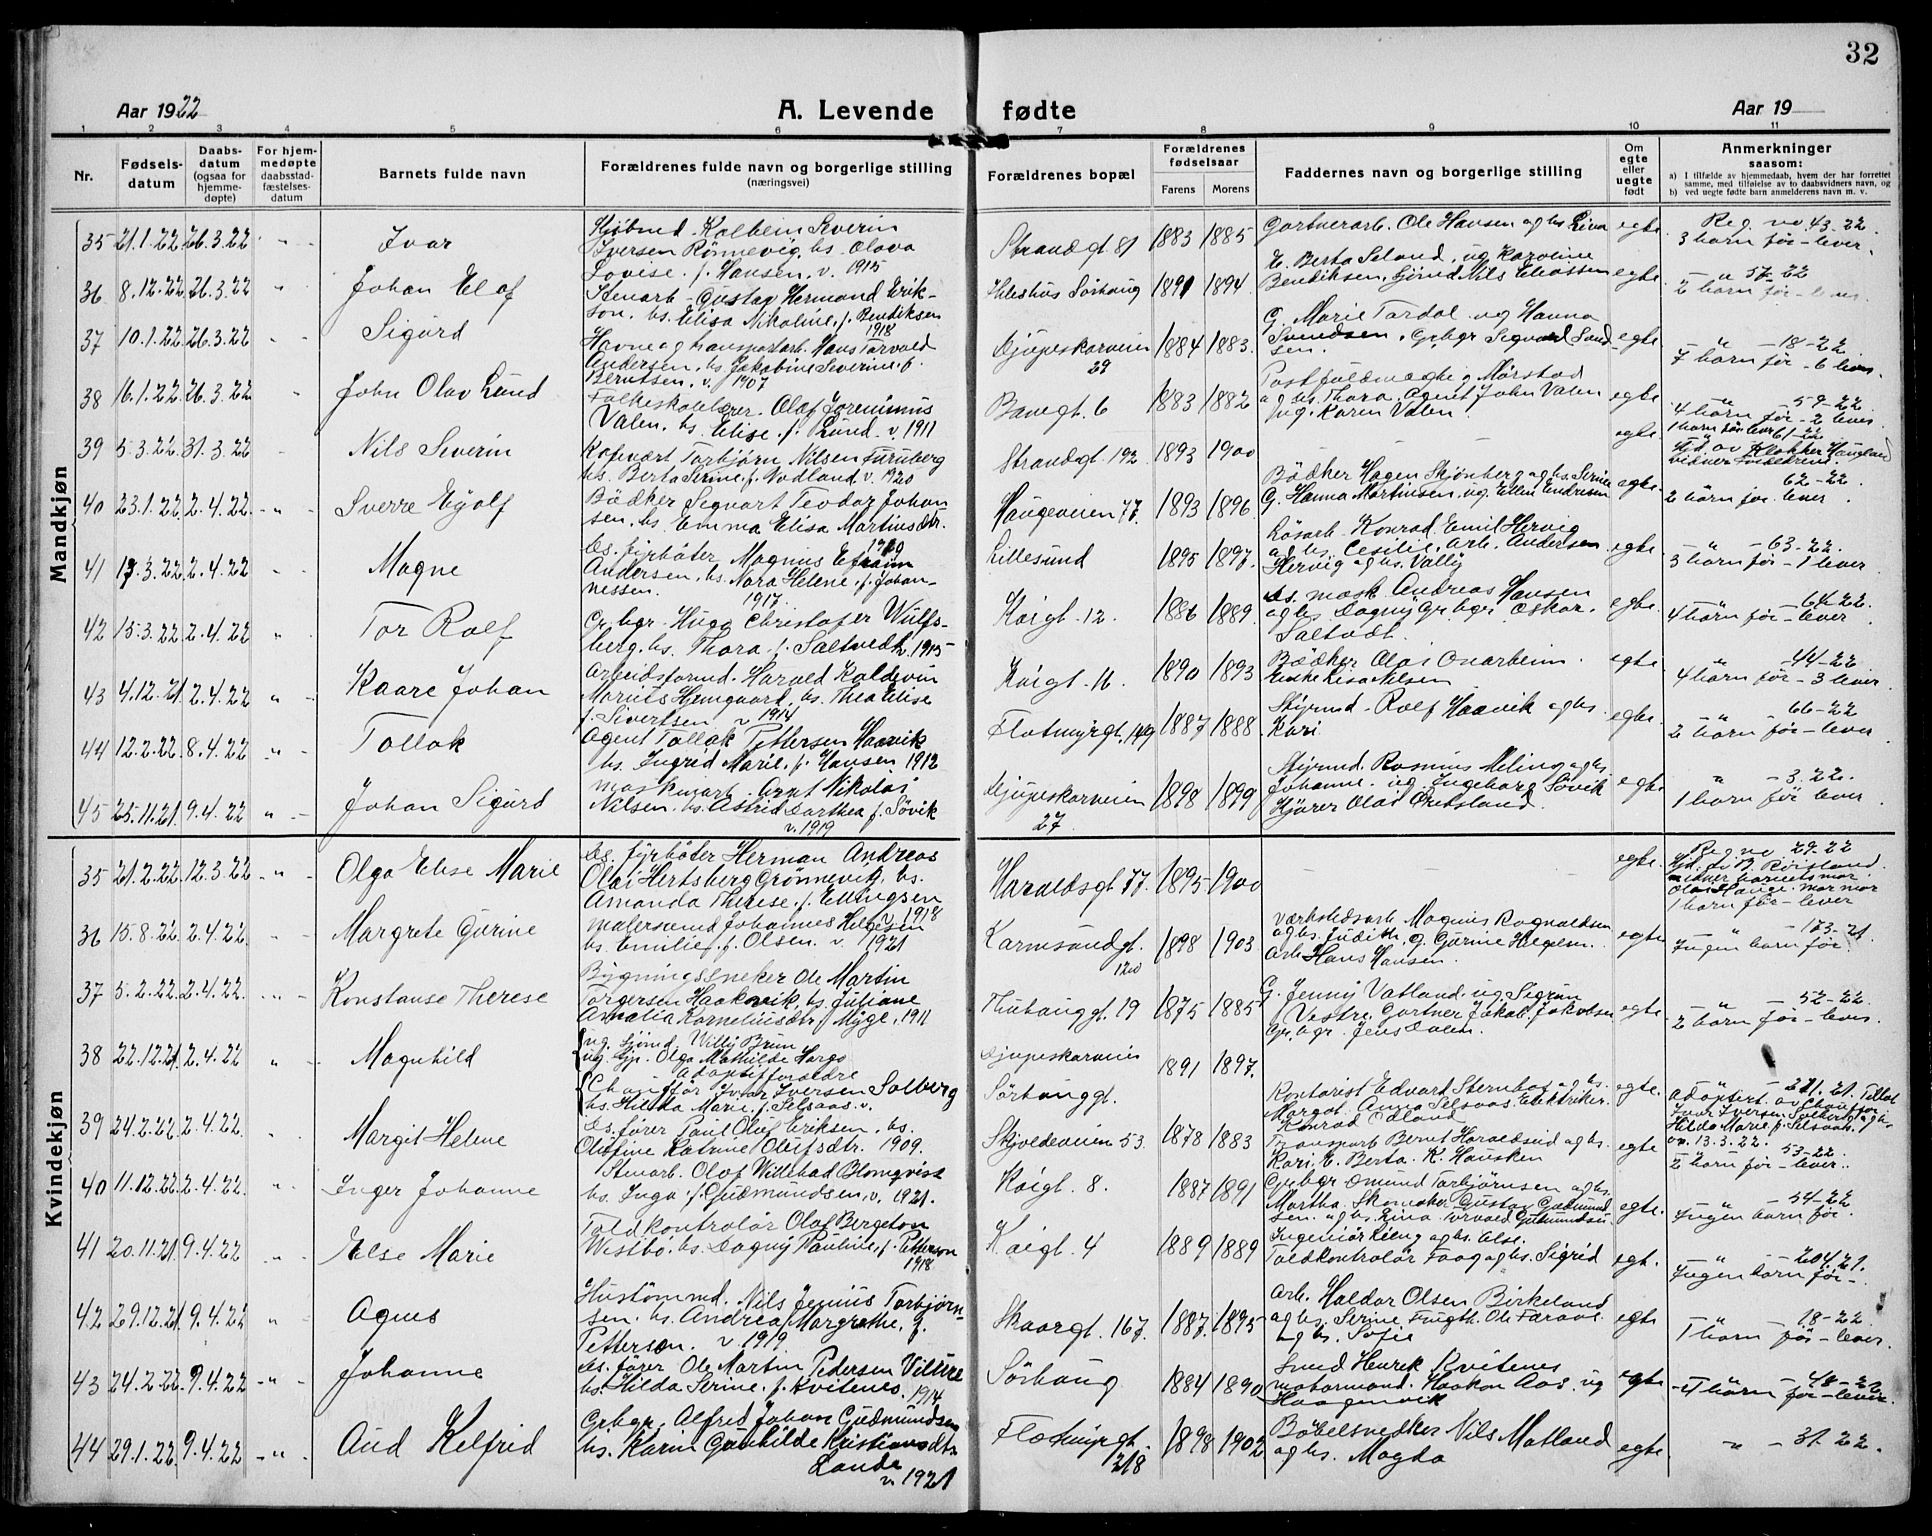 32
Aar 1922
A. Levende fødte
Aar 19
1 2 3 4 5 6 7 8 9 10 11
Nr.
Fødsels-datum
Daabs-datum (ogsaa for hjemme-døpte)
For hjem-medøpte daabsstad-fæstelses-datum
Barnets fulde navn
Forældrenes fulde navn og borgerlige stilling (næringsvei)
Forældrenes bopæl
Forældrenes fødselsaar
Farens Morens
Faddernes navn og borgerlige stilling
Om egte eller uegte født
Anmerkninger saasom:
a) I tilfælde av hjemmedaab, hvem der har forrettet samme, med tilføielse av to daabsvidners navn, og
b) ved uegte fødte barn anmelderens navn m. v.
Mandkjøn
35 21.1.22 26.3.22 Ivar
Kolbein Severin
Iversen Rønnevig, hs. Olava
Lovise f. Hansen v. 1915
Strandgt 81 1883 1885
Gartnerarb. Ole Hansen og hs.
egte
Reg. no 43-22
3 barn før - lever
36 8.12.22 26.3.22 Johan Elof
Stenarb. Gustav Hermand Erik-
son, hs. Elisa Nikoline f. Bendiksen
1918
Sørhaug 1891 1894
E. Berta Seland, ug Karoline
Bendiksen, Sjømd Nils Eliassen
egte
57-22
2 barn før - lever
37 10.1.22 26.3.22 Sigurd
Havne og transportarb. Hans Torvald
Andersen, hs Jakobine Severine f.
Berntsen, v. 1907
Djupeskarveien 29 1884 1883
G. Marie Tordal, ug Hanna
Svendsen, Grbgr Sigvard Svend-
sen.
egte
18-22
7 barn før - 6 lever
38 16.1.22 26.3.22 John Olav Lund
Folkeskolelærer Olaf
Valen, hs. Elise f. Lund v. 1911
Banegt. 6 1883 1882
og hs. Thora, Agent John Valen
ug. Karen Valen
egte
59-22
4 barn før - 2 lever
39 5.3.22 31.3.22 Nils Severin
Torbjørn Nilsen Furuberg
hs. Berta Serine f. Nodland v. 1920
Strandgt. 192 1893 1900
egte
1 barn før lever 61-22
Hjd. av Klokker Haugland
40 23.1.22 2.4.22 Sverre Eyolf
Bødker Sigvart Teodor Johan-
sen, hs Emma Elisa Martinsdtr.
1919
Haugeveien 77 1893 1896
Bødker Hagen Skjønberg og hs. Serine
G. Hanna Martinsen, ug. Ellen Endresen
egte
62-22
2 barn før lever
41 17.3.22 2.4.22 Magne
Ds. fyrbøter Magnus Efraim
Andersen, hs. Nora Helene, f. Johan-
nessen. 1917
Lillesund 1895 1897
Løsarb. Konrad Emil Hervig
og hs. Cecilie, Arb. Andersen
Hervig og hs. Vally
egte
63-22
3 barn før - 1 lever
42 15.3.22 2.4.22 Tor Rolf
Grbgr. Hugo Christofer Wulfs-
berg, hs. Thora f. Saltvedt, 1915
Kaigt. 12 1886 1889
Ds. mask. Andreas Hansen
og hs Dagny, Grbgr Oskar
Saltvedt.
egte
64-22
4 barn før - lever
43 4.12.21 2.4.22 Kaare Johan
Arbeidsformd. Harald Koldevin
hs. Thea Elise
f. Sivertsen v 1914
Kaigt. 16 1890 1893
Bødker Olai
egte
44-22
4 barn før - 3 lever
44 12.2.22 8.4.22 Tollak
Agent Tollak Pettersen Haavik
hs. Ingrid Marie, f. Hansen 1912
Flotmyrgt. 149 1887 1888
Styrmd. Rolf Haavik og hs.
Kari
egte
66-22
2 barn før - lever
45 25.11.21 9.4.22 Johan Sigurd
Arnt Nikolai
Nilsen. hs. Astrid Dorthea f. Søvik
v. 1919
Djupeskarveien 27 1898 1899
Styrmd. Rasmus Meling og hs.
Johanne, ug. Ingeborg Søvik
Olai
egte
3.22.
1 barn før lever
Kvindekjøn
35 21.2.22 12.3.22 Olga Elise Marie
Ds. fyrbøter Herman Andreas
Olai Hertsberg Grønnevig, hs.
Amanda Therese f. Ellingsen
v. 1918
Haraldsgt. 77 1895 1900
egte
Reg no 29-22
Hjd. av B. Røisland
vidner barnets mor
Olai Hauge, mormor
1 barn før - lever
36 15.8.22 2.4.22 Margrete Gurine
Malersvend Johannes Helgesen
hs. Emilie f. Olsen v. 1921
Karmsundgt. 120 1898 1903
Værkstedsarb. Magnus Ragnvaldsen
og hs. Judith, G. Gurine Helgesen.
Arb Hans Hansen.
egte
173-21
Ingen barn før
37 5.2.22 2.4.22 Konstanse Therese
Bygningssneker Ole Martin
Torgersen Haakovik, hs. Juliane
Amalia Korneliusdtr. f. Myge, 1911
19 1875 1885
G. Jenny Vatland, ug. Sigrun
Vestre, Gartner Jakob Jakobsen
Gr. bgr. Jens Dalen.
egte
52-22
2 barn før - lever
38 22.12.21 2.4.22 Magnhild
ug. Sjømd. Willy Brun
ug. Gp. Olga Mathilde Hargo
adoptivforældre
Chauffør Ivar Iversen Solberg
hs. Hilda Marie f. Selsaas v.
Djupeskarveien 1891 1897
Sørhauggt.
Kontorist Edvart Sternhof og hs.
Margot, Anna Selsaas, Elektriker
Konrad Ødland
egte
Adoptert av Chauffør
Ivar Iversen Solberg og hs.
Hilda Marie f. Selsaas
13.3.22.
39 24.2.22 2.4.22 Margit Helene
Ds. fører Paul Oluf Eriksen, hs.
Olefine Katrine Olufsdtr. 1909.
Skjoldeveien 53 1878 1883
Transparb Bernt Haraldseid og hs.
Kari, E. Berta K. Hausken
egte
53-22
2 barn før - lever
40 11.12.22 2.4.22 Inger Johanne
Stenarb. Olof Willehad Blomqvist
hs. Inga f. Gudmundsen, v. 1921.
Kaigt. 8. 1887 1891
Grbgr Omund Torbjørnsen og hs.
Martha, Skomaker Gustav Gudmund-
sen og hs. Lina, Torvald Gudmundsen
egte
54-22
Ingen barn før
41 20.11.21 9.4.22 Else Marie
Toldkontrolør Olaf Bergeton
Westbø, hs. Dagny Pauline, f. Petterson
1918
Kaigt. 4 1889 1889
Ingeniør og hs. Else.
Toldkontrolør Faag og hs. Sigrid
egt.
204.21.
Ingen barn før -
42 29.12.21 9.4.22 Agnes
Hustømmd. Nils Jenius Torbjørn-
sen. hs. Andrea Margrethe, f.
Pettersen. v 1919.
Skaaregt. 167 1887 1895
Arb. Haldor Olsen Birkeland
og hs. Serine
og hs. Sofie
egte
18-22
1 barn før - lever
43 24.2.22 9.4.22 Johanne
Ds. fører Ole Martin Pedersen
hs. Hilda Serine, f. Kvitenes. 1914
Sørhaug 1884 1890
Smed Henrik Kvitenes
Haakon Aas, ug
egte
48-22
4 barn før - lever
44 29.1.22 9.4.22 Aud Kelfrid
Grbgr. Alfred Johan Gudmundsen
hs. Karin Gunhilde Kristiansdtr.
Lande
v. 1921
Flotmyrgt. 218 1898 1902
Nils Matland
og hs. Magda
egte
31 22.